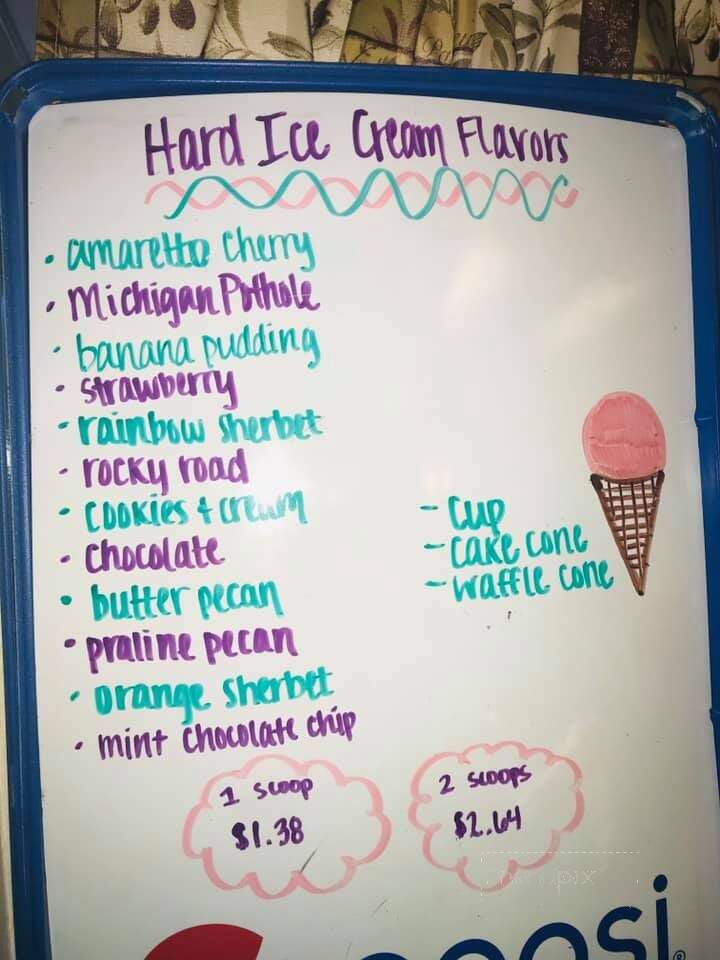 Hard Ice Cream Flavors
• amaretto cherry
• Michigan Pothole
• banana pudding
• strawberry
• rainbow sherbet
• rocky road
• cookies + cream
• chocolate
• butter pecan
• praline pecan
• orange sherbet
• mint chocolate chip
- cup
- cake cone
- waffle cone
1 scoop
$1.38
2 scoops
$2.64
pepsi